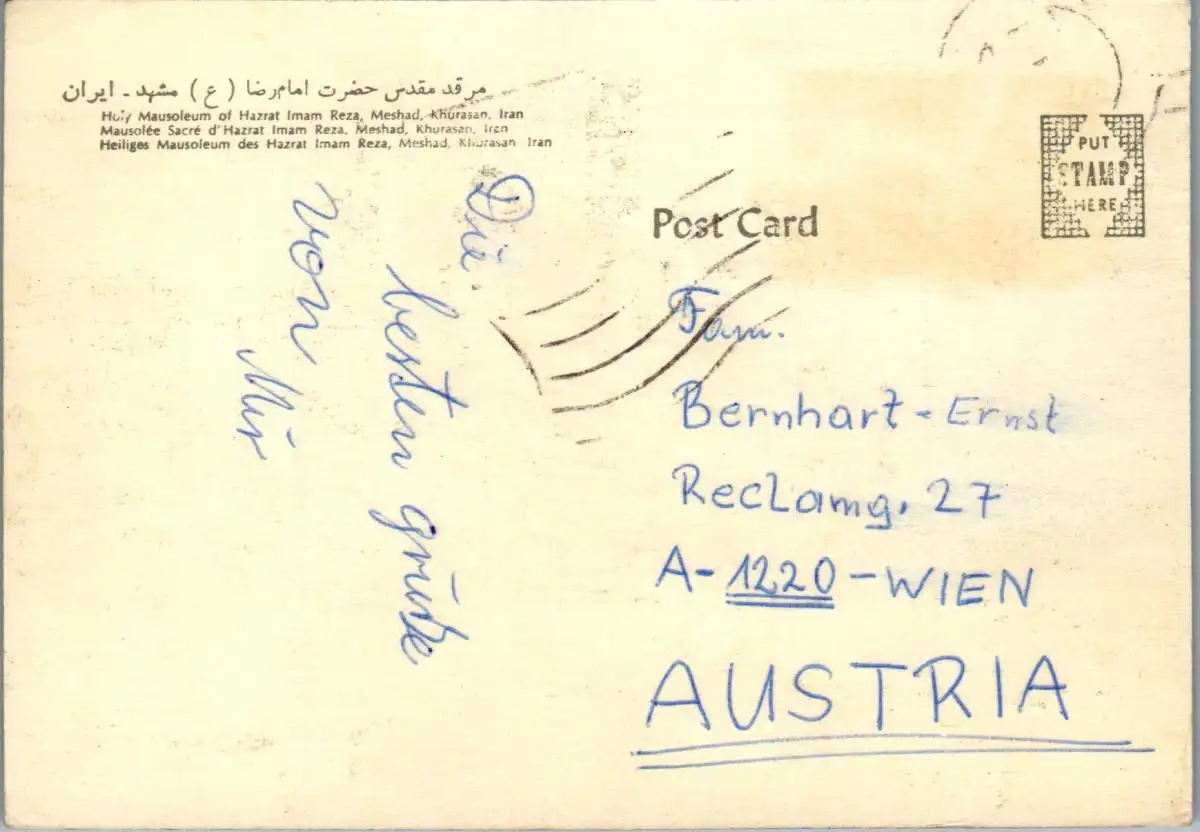 مرقد مقدس حضرت امام رضا ( ع ) مشهد - ایران
Holy Mausoleum of Hazrat Imam Reza, Meshad, Khurasan, Iran
Mausolée Sacré d'Hazrat Imam Reza, Meshad, Khurasan, Iran
Heiliges Mausoleum des Hazrat Imam Reza, Meshad, Khurasan Iran
Die
besten grüße
von
Mir
PUT
STAMP
HERE
Post Card
Fam.
Bernhart - Ernst
Reclamg. 27
A-1220-WIEN
AUSTRIA